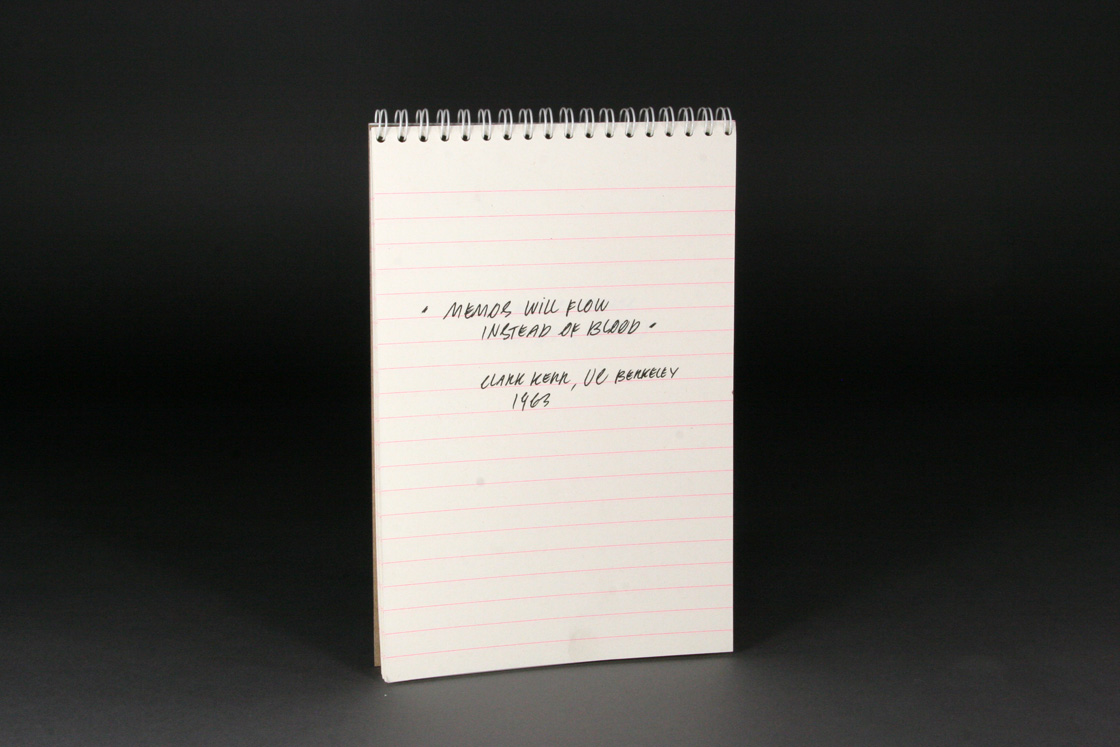 " MEMOS WILL FLOW
INSTEAD OF BLOOD "
CLARK KERR, UC BERKELEY
1963